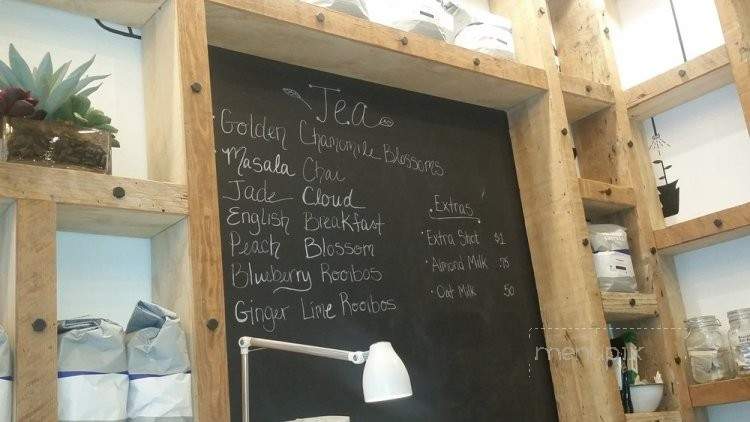 Tea
Golden Chamomile Blossoms
Masala Chai
Jade Cloud
English Breakfast
Peach Blossom
Blueberry Rooibos
Ginger Lime Rooibos
Extras
Extra Shot $1
Almond Milk .75
Oat Milk .50
menupix